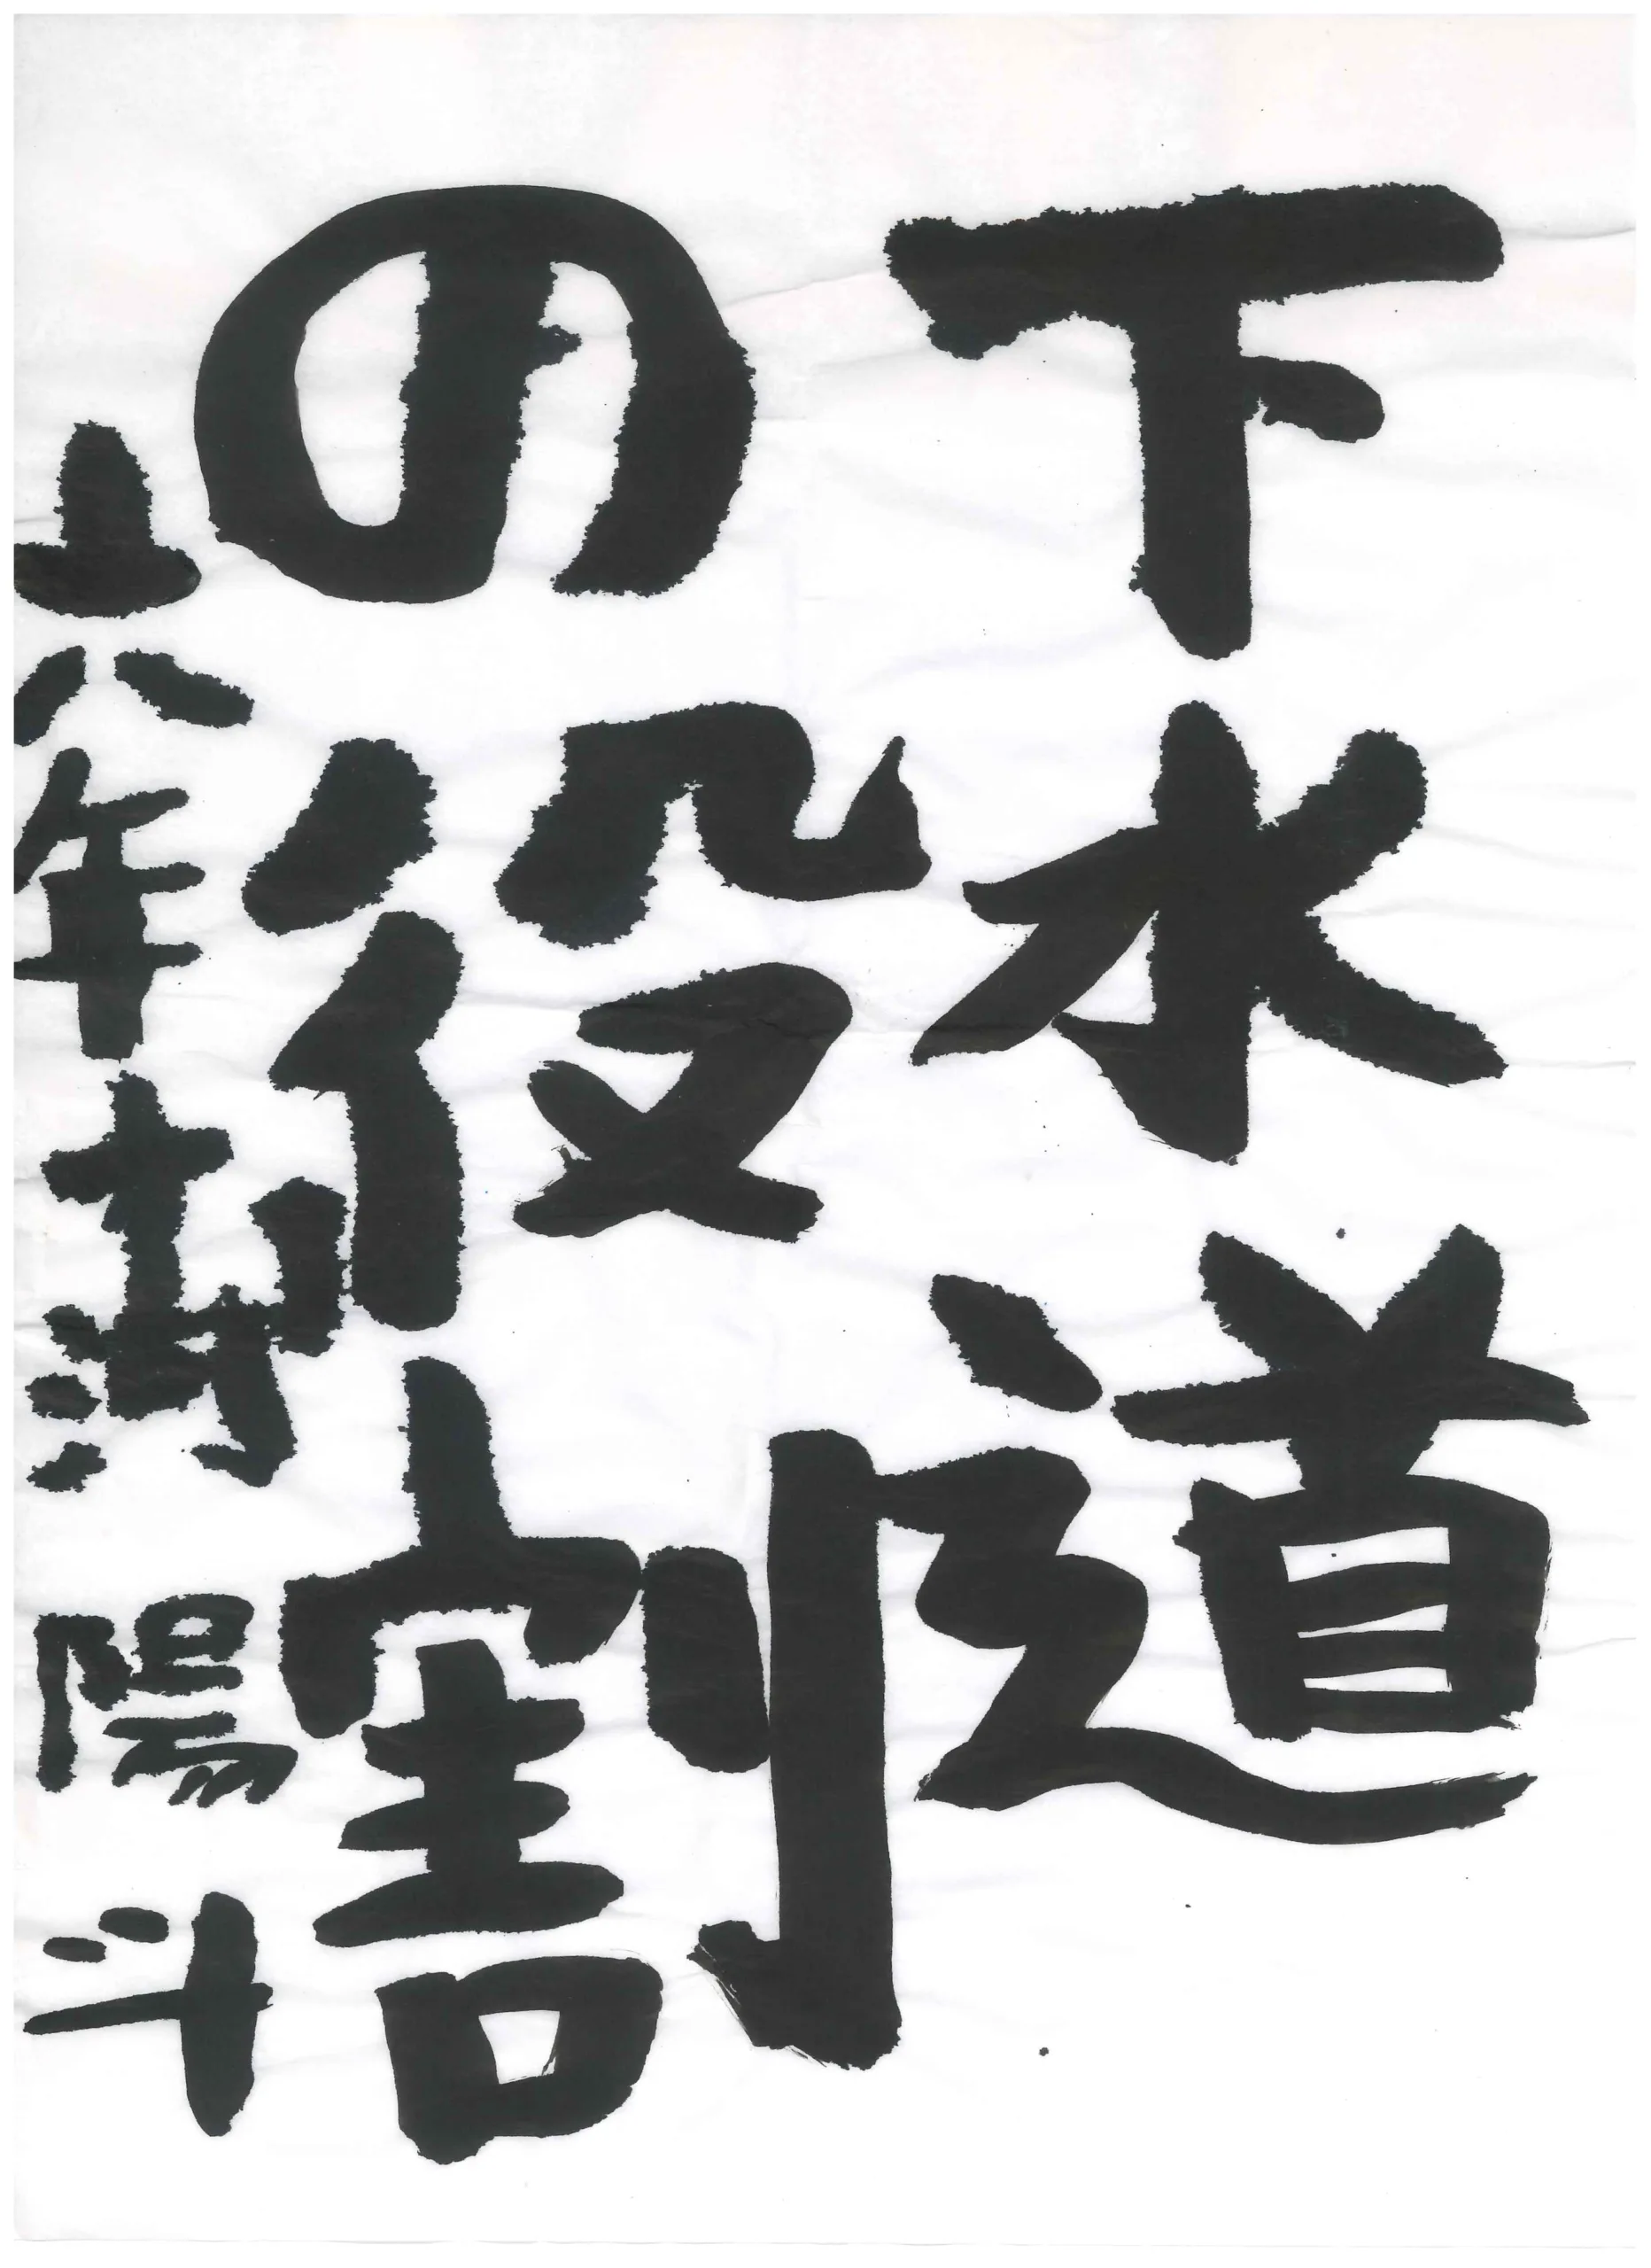 下水道
の役割
六年 陽斗